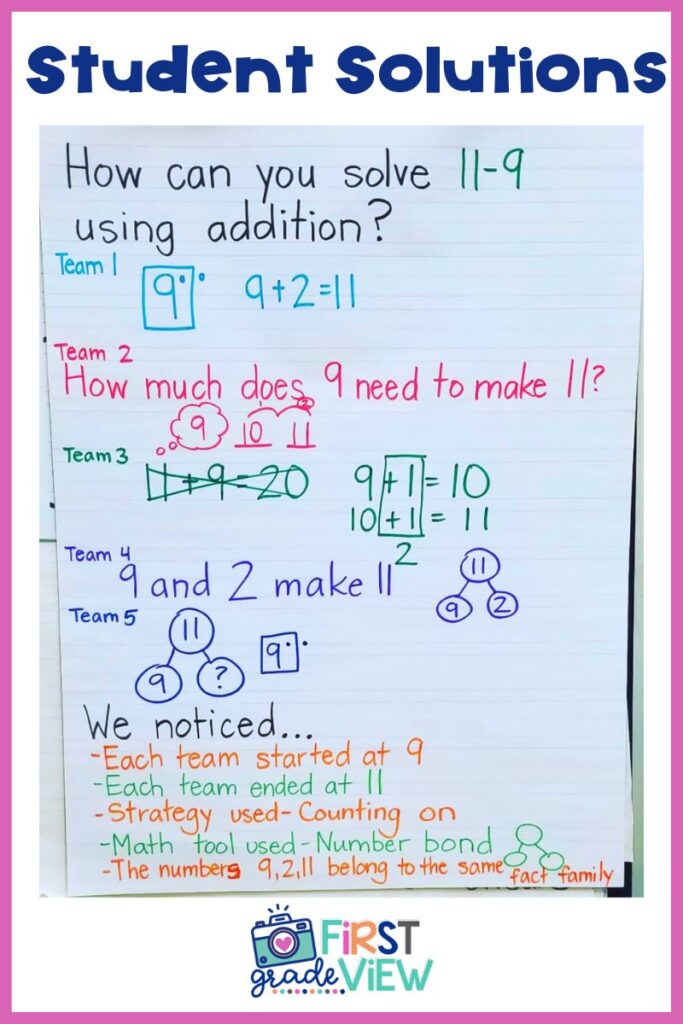 Student Solutions
How can you solve 11-9
using addition?
Team 1
9 9+2=11
Team 2
How much does 9 need to make 11?
2
9 10 11
Team 3
11+9=20 9+1=10
10+1=11
2
Team 4
9 and 2 make 11
11
9 2
Team 5
11
9 ?
9
We noticed...
-Each team started at 9
-Each team ended at 11
-Strategy used-Counting on
-Math tool used-Number bond
-The numbers 9,2,11 belong to the same fact family
FiRST
grade ViEW